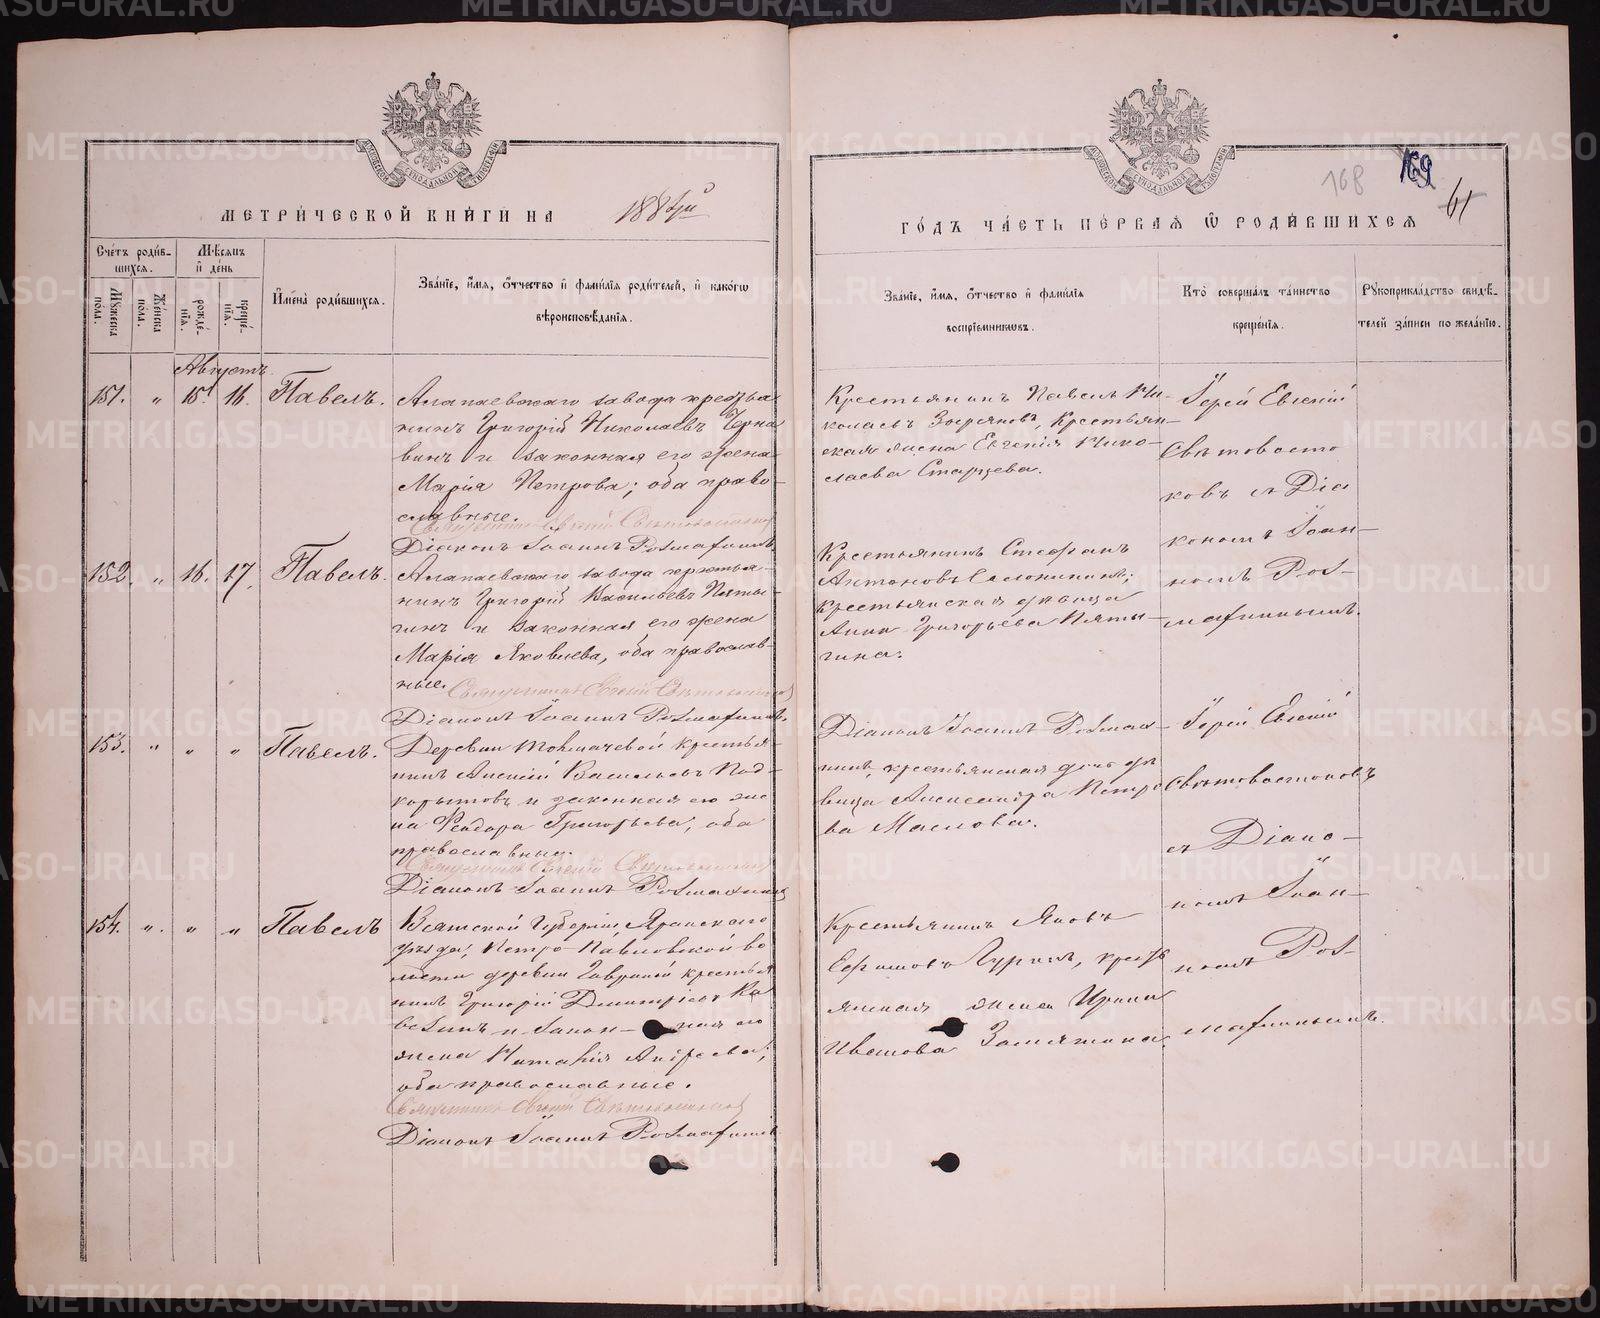 МЕТРИ́ЧЕСКОЙ КНИ́ГИ НА 188
ГО́ДЪ ЧА́СТЬ ПЕ́РВАЯ Ѿ РОДИ́ВШИХСЯ
168 169 61
Сче́тъ роди́в-
шихся.
Мѣсяцъ
и де́нь
Мꙋжеска
по́ла.
Же́нска
по́ла.
рожде́-
нїя.
креще́-
нїя.
И́мена̀ роди́вшихся.
Зва́нїе, и́мя, ѻ́тчество и фами́лїя роди́телей, и како́гѡ
вѣроисповѣ́данїя.
Зва́нїе, и́мя, ѻ́тчество и фами́лїя
воспрїе́мникѡвъ.
Кто̀ соверша́лъ та́инство
креще́нїя.
Рꙋкоприкла́дство свидѣ́-
телей за́писи по жела́нїю.
Августъ.
151. " 15. 16. Павелъ.
Алапаевскаго завода крестья
нинъ Григорій Николаевъ Черна
винъ и законная его жена
Марія Петрова; оба право-
славные.
Священникъ Евгеній Свѣтовостоковъ
Діаконъ Іоаннъ Розмахнинъ.
Крестьянинъ Павелъ Ни-
колаевъ Зыряновъ, Крестьян-
ская жена Евгенія Нико-
лаева Старцева.
Іерей Евгеній
Свѣтовосто
ковъ съ Діа
кономъ Іоан-
номъ Роз-
махнинымъ.
152. " 16. 17. Павелъ.
Алапаевскаго завода крестья-
нинъ Григорій Васильевъ Пяты-
гинъ и законная его жена
Марія Яковлева, оба православ-
ные. Священникъ Евгеній Свѣтовостоковъ
Діаконъ Іоаннъ Розмахнинъ.
Крестьянинъ Стефанъ
Антоновъ
крестьянская дѣвица
Анна Григорьева Пяты-
гина.
153. " " " Павелъ.
Деревни Толмачевой крестья-
нинъ Алексій Васильевъ Под-
корытовъ и законная его же
на Ѳеодора Григорьева; оба
православные.
Священникъ Евгеній Свѣтовостоковъ
Діаконъ Іоаннъ Розмахнинъ
Діаконъ Іоаннъ Розмах-
нинъ, крестьянская дочь дѣ
вица Александра Петро
ва Маслова.
Іерей Евгеній
Свѣтовостоковъ
съ Діако-
номъ Іоан-
номъ Роз-
махнинымъ.
154. " " " Павелъ
Вятской Губерніи, Яранскаго
уѣзда, Петро-Павловской во
лости деревни крестья
нинъ Григорій Димитріевъ Ка
и закон- ная его
жена Наталія Андреева;
оба православные.
Священникъ Евгеній Свѣтовостоковъ
Діаконъ Іоаннъ Розмахнинъ
Крестьянинъ Яковъ
Ефимовъ Гуринъ, крестья
янская жена Ирина
Иванова Замятина.
METRIKI.GASO-URAL.RU